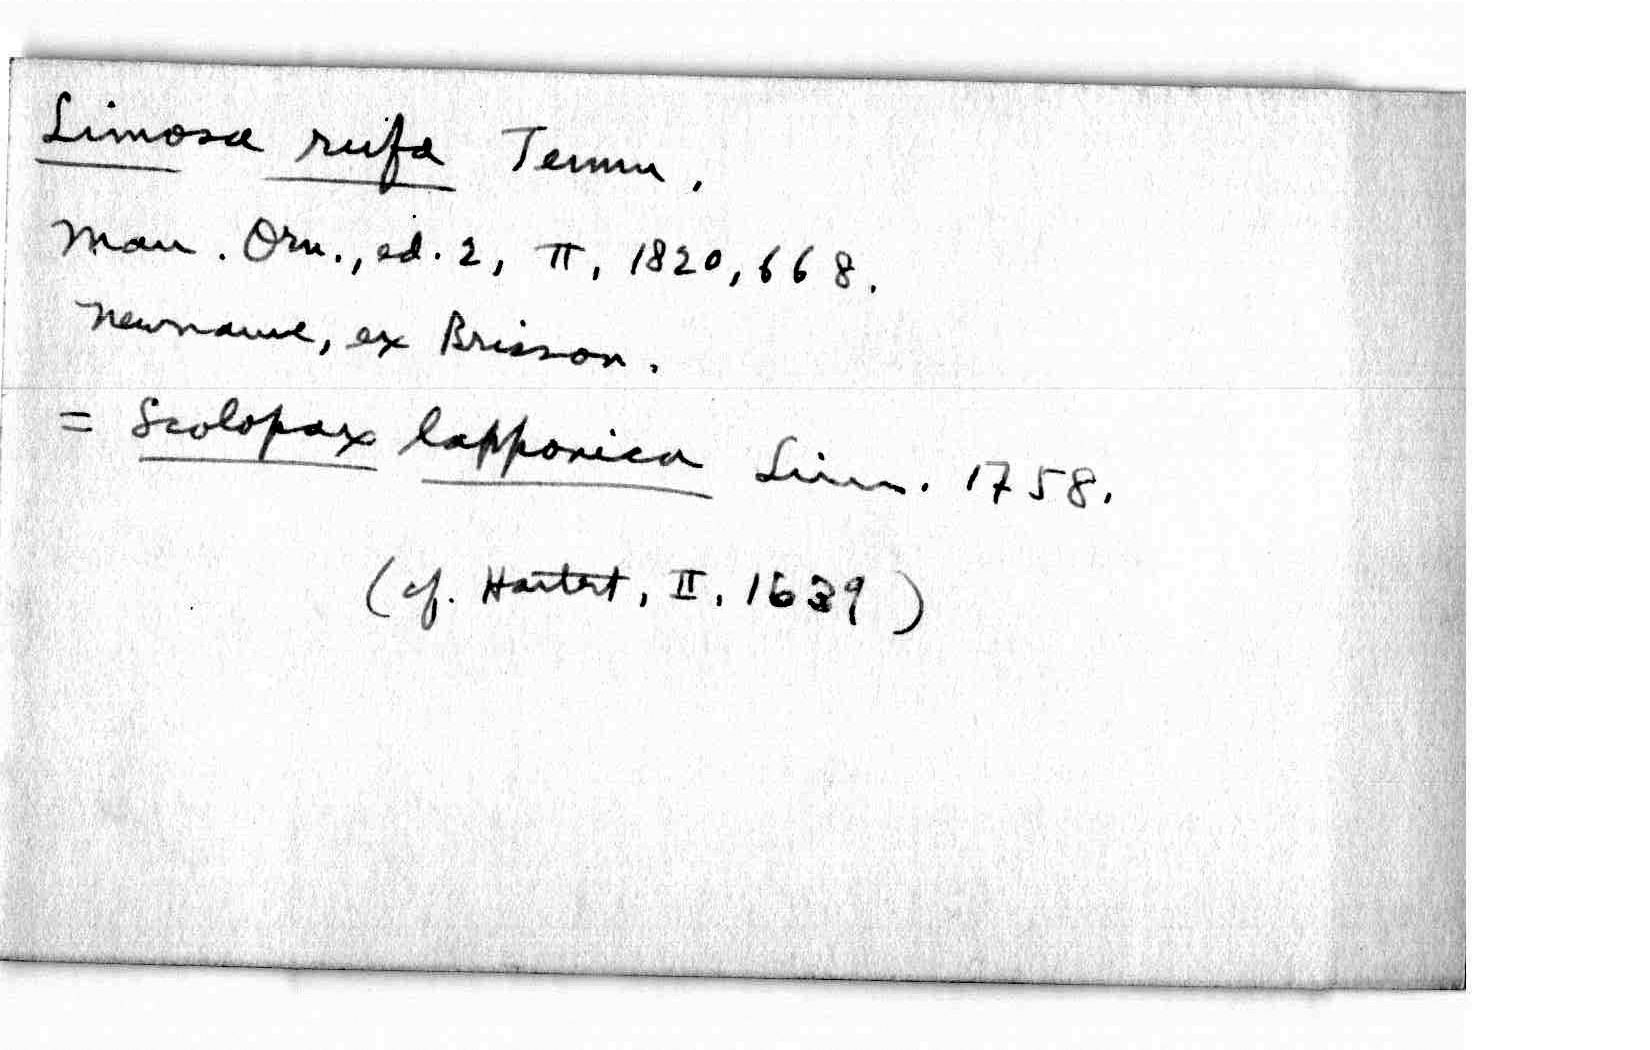 Limosa rufa Temm,
Man. Orn., ed. 2, II, 1820, 668.
Newname, ex Brisson.
= Scolopax lapponica Linn. 1758.
(cf. Hartert, II, 1639)